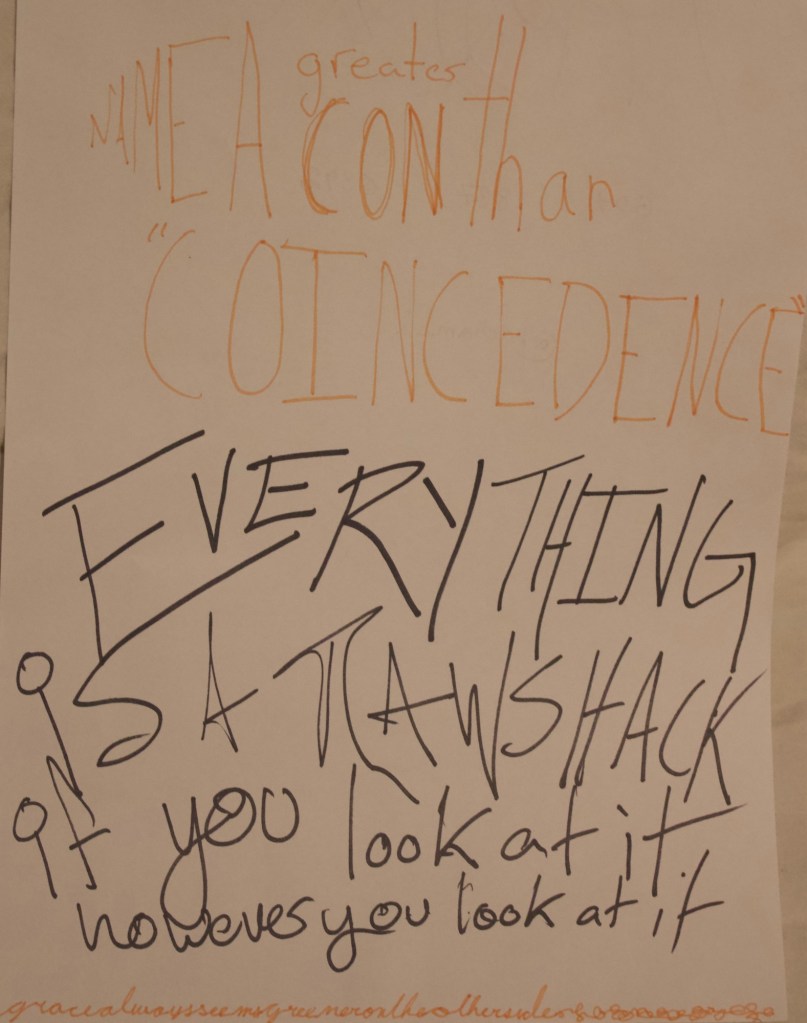 NAME A greater
CON than
"COINCEDENCE"
EVERYTHING
iS A RAWSHACK
if you look at it
however you look at it
gracealwaysseemsgreenerontheotherside